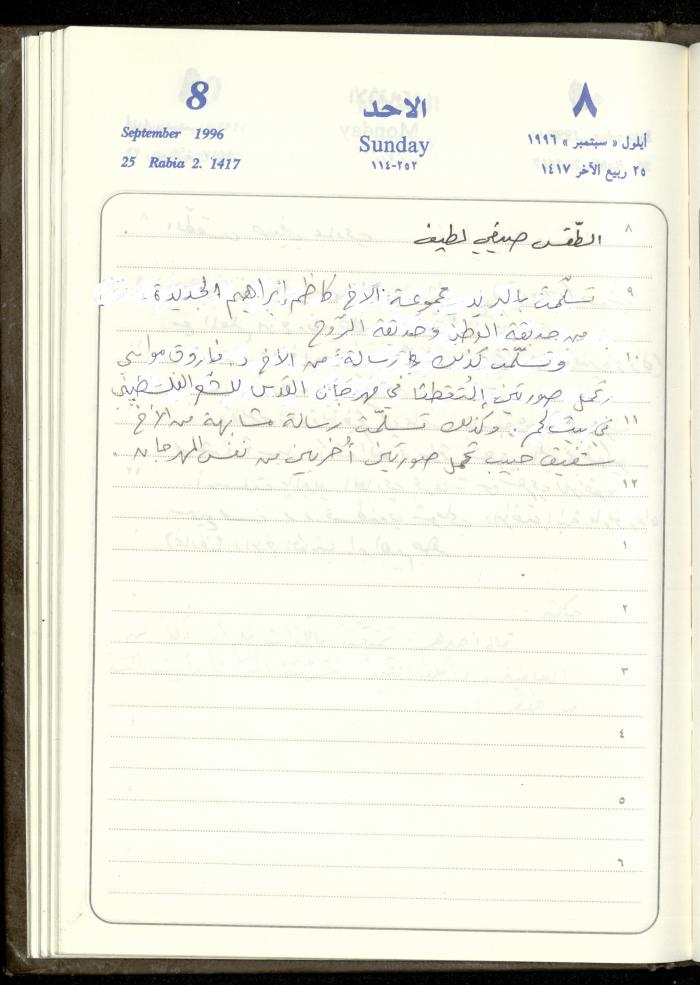 8
September 1996
25 Rabia 2. 1417
الاحد
Sunday
١١٤-٢٥٢
٨
أيلول « سبتمبر » ١٩٩٦
٢٥ ربيع الآخر ١٤١٧
٨
الطّقس صيفي لطيف
٩
تسلّمت بالبريد مجموعة الأخ كاظم إبراهيم الجديدة.
من حديقة الوطن وحديقة الرّوح
وتسلّمت كذلك رسالة من الأخ د. فاروق مواسي
تحمل صورتين التُقطتا في مهرجان القدس للشعر الفلسطيني
١١
في بيت لحم. وكذلك تسلّمت رسالة مشابهة من الأخ
شفيق حبيب تحمل صورتين أُخريين من نفس المهرجان.
١٢
١
٢
٣
٤
٥
٦